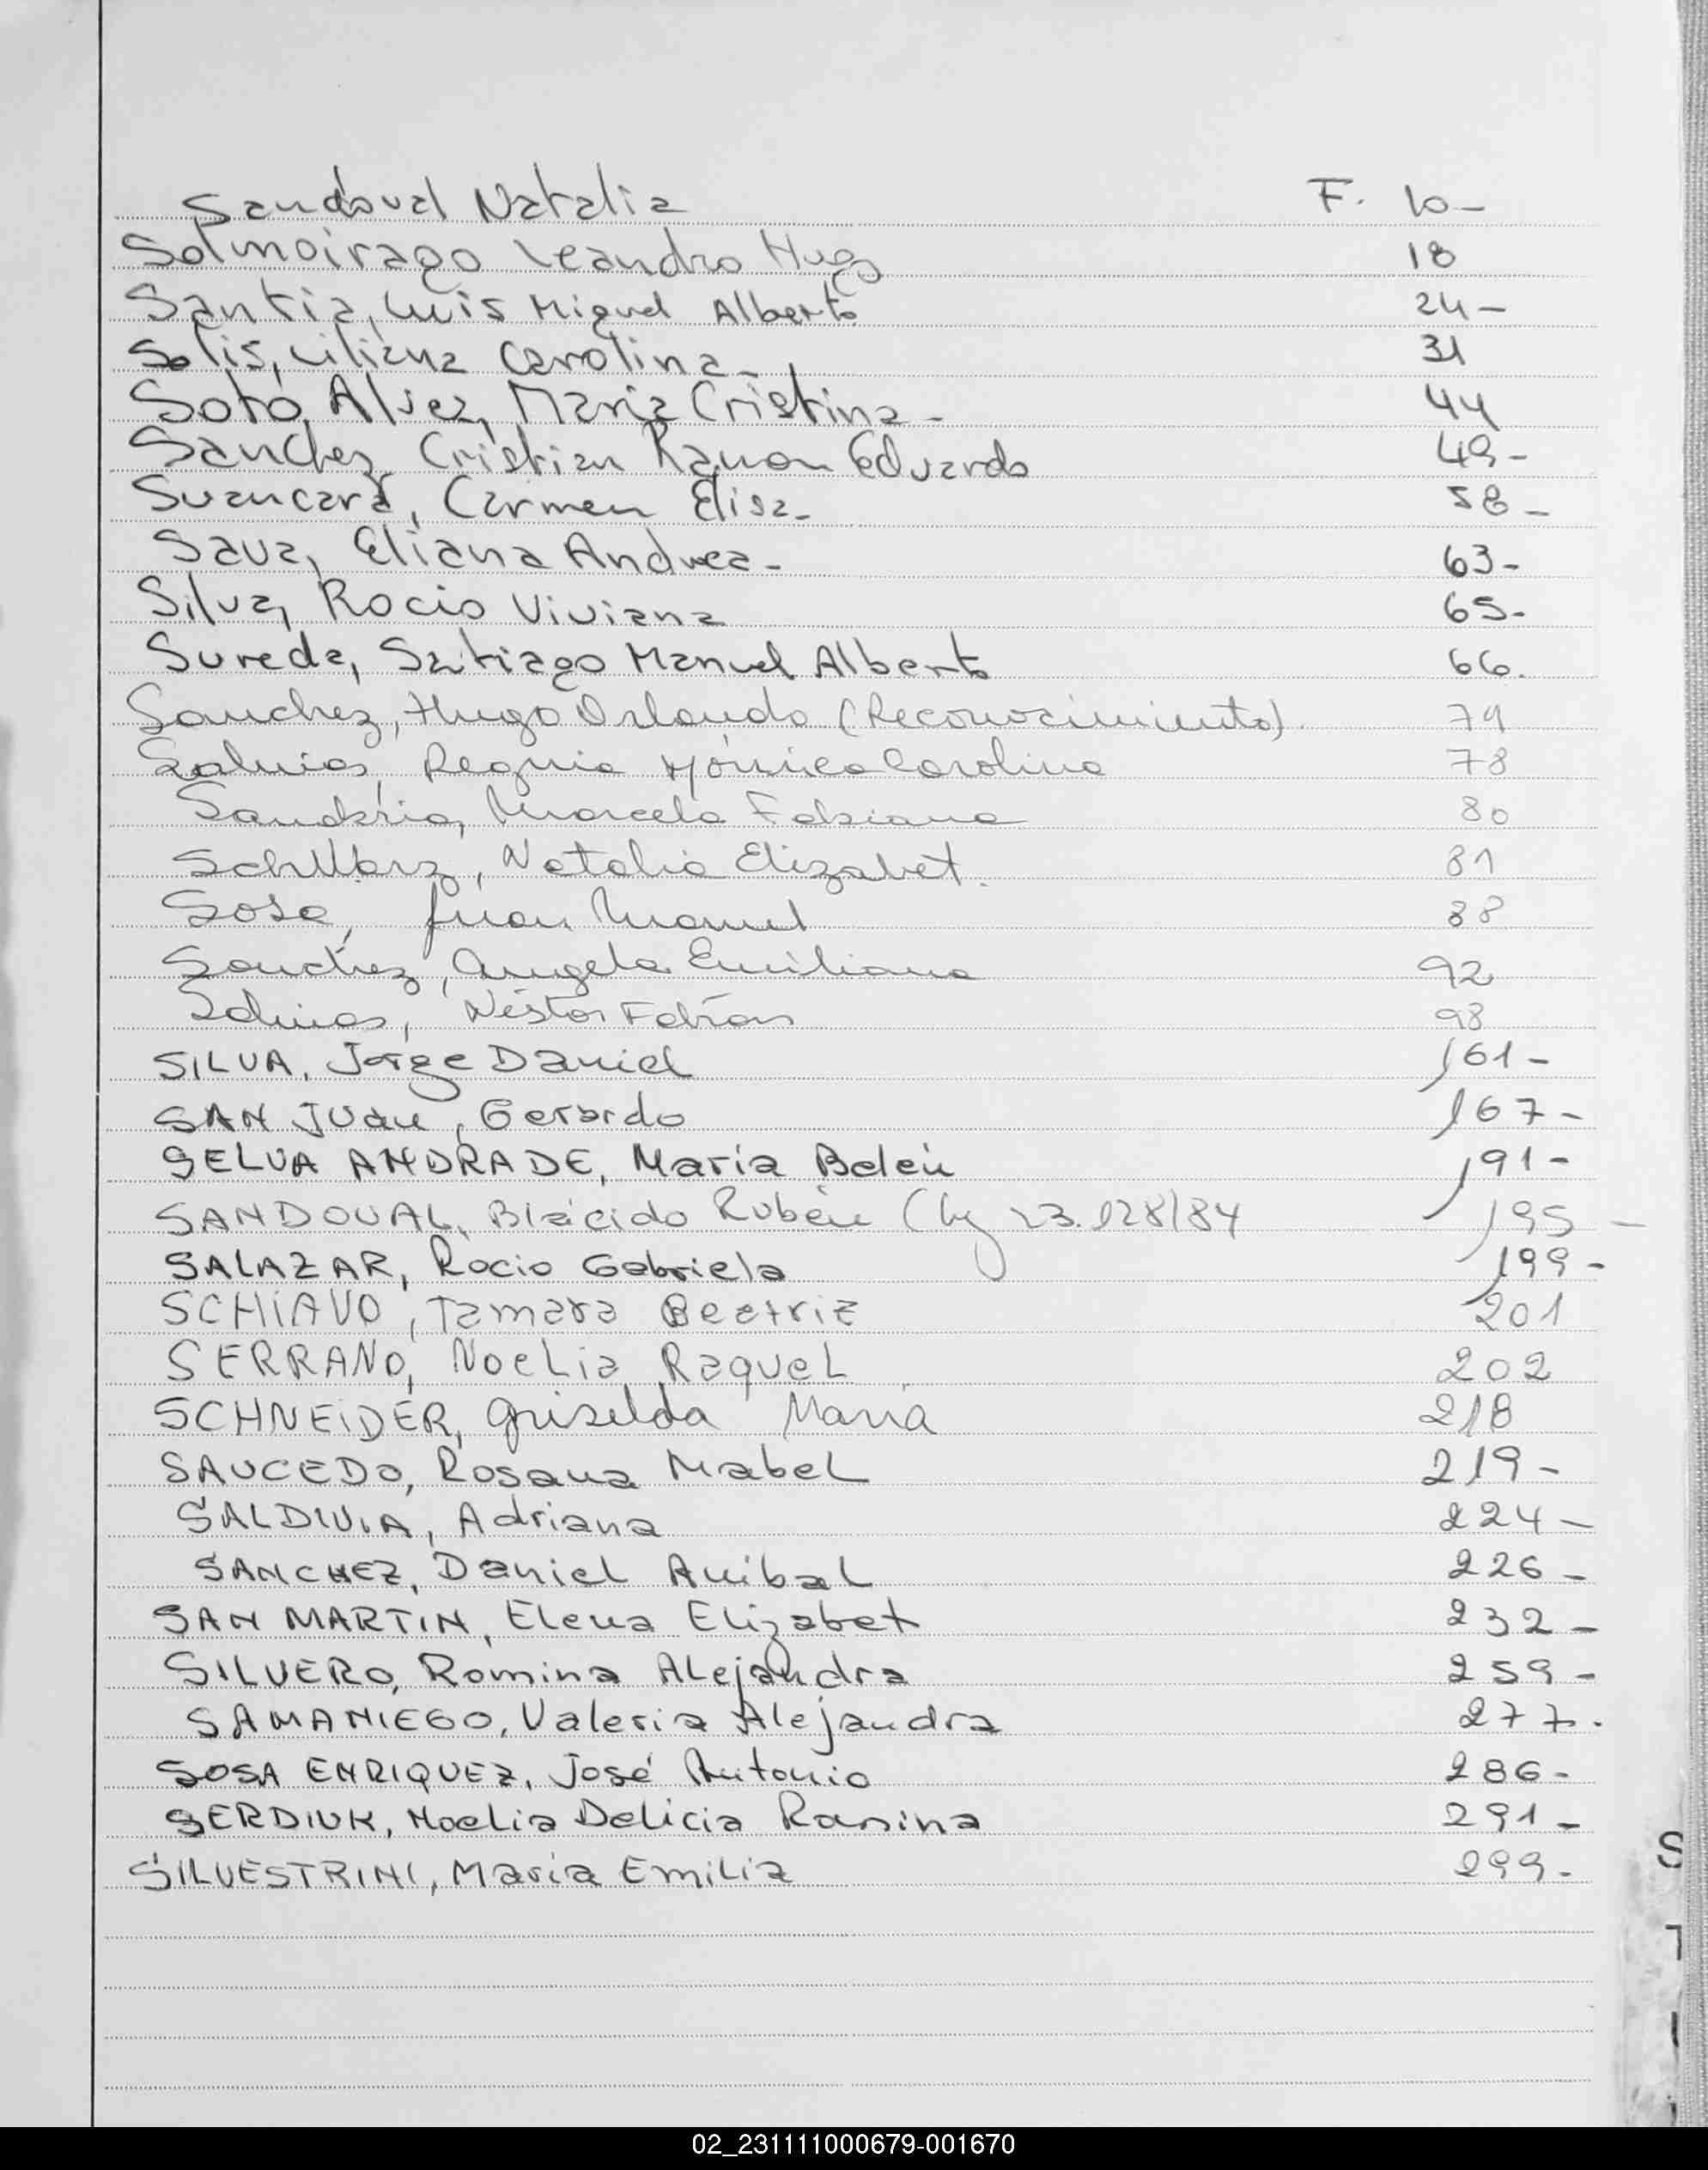 Sandoval Natalia F. 10-
Solmoirago Leandro Hugo 18
Santia, Luis Miguel Alberto 24-
Solis, Liliana Carolina- 31
Soto Alvez, Maria Cristina- 44
Sanchez Cristian Ramon Eduardo 49-
Svancara, Carmen Elisa- 58-
Sava, Eliana Andrea- 63-
Silva, Rocio Viviana 65-
Sureda, Santiago Manuel Alberto 66.
Sanchez, Hugo Orlando (Reconocimiento). 71
Salinas, Mónica Carolina 78
Marcela Fabiana 80
Schwarz, Natalia Elizabet. 81
Sosa, Juan Manuel 88
Sanchez, Angela Emiliana 92
Salinas, Néstor Fabián 98
SILVA, Jorge Daniel 161-
SAN JUAN, Gerardo 167-
SELVA ANDRADE, María Belén 191-
SANDOVAL, Blácido Rubén (Ley 23.128/84 195-
SALAZAR, Rocio Gabriela 199-
SCHIAVO, Tamara Beatriz 201
SERRANO, Noelia Raquel 202
SCHNEIDER, Griselda María 218
SAUCEDO, Rosana Mabel 219-
SALDIVIA, Adriana 224-
SANCHEZ, Daniel Anibal 226-
SAN MARTIN, Elena Elizabet 232-
SILVERO, Romina Alejandra 259-
SAMANIEGO, Valeria Alejandra 277.
SOSA ENRIQUEZ, José Antonio 286-
SERDIUK, Noelia Delicia Romina 291-
SILVESTRINI, María Emilia 299-
S
T
02_231111000679-001670